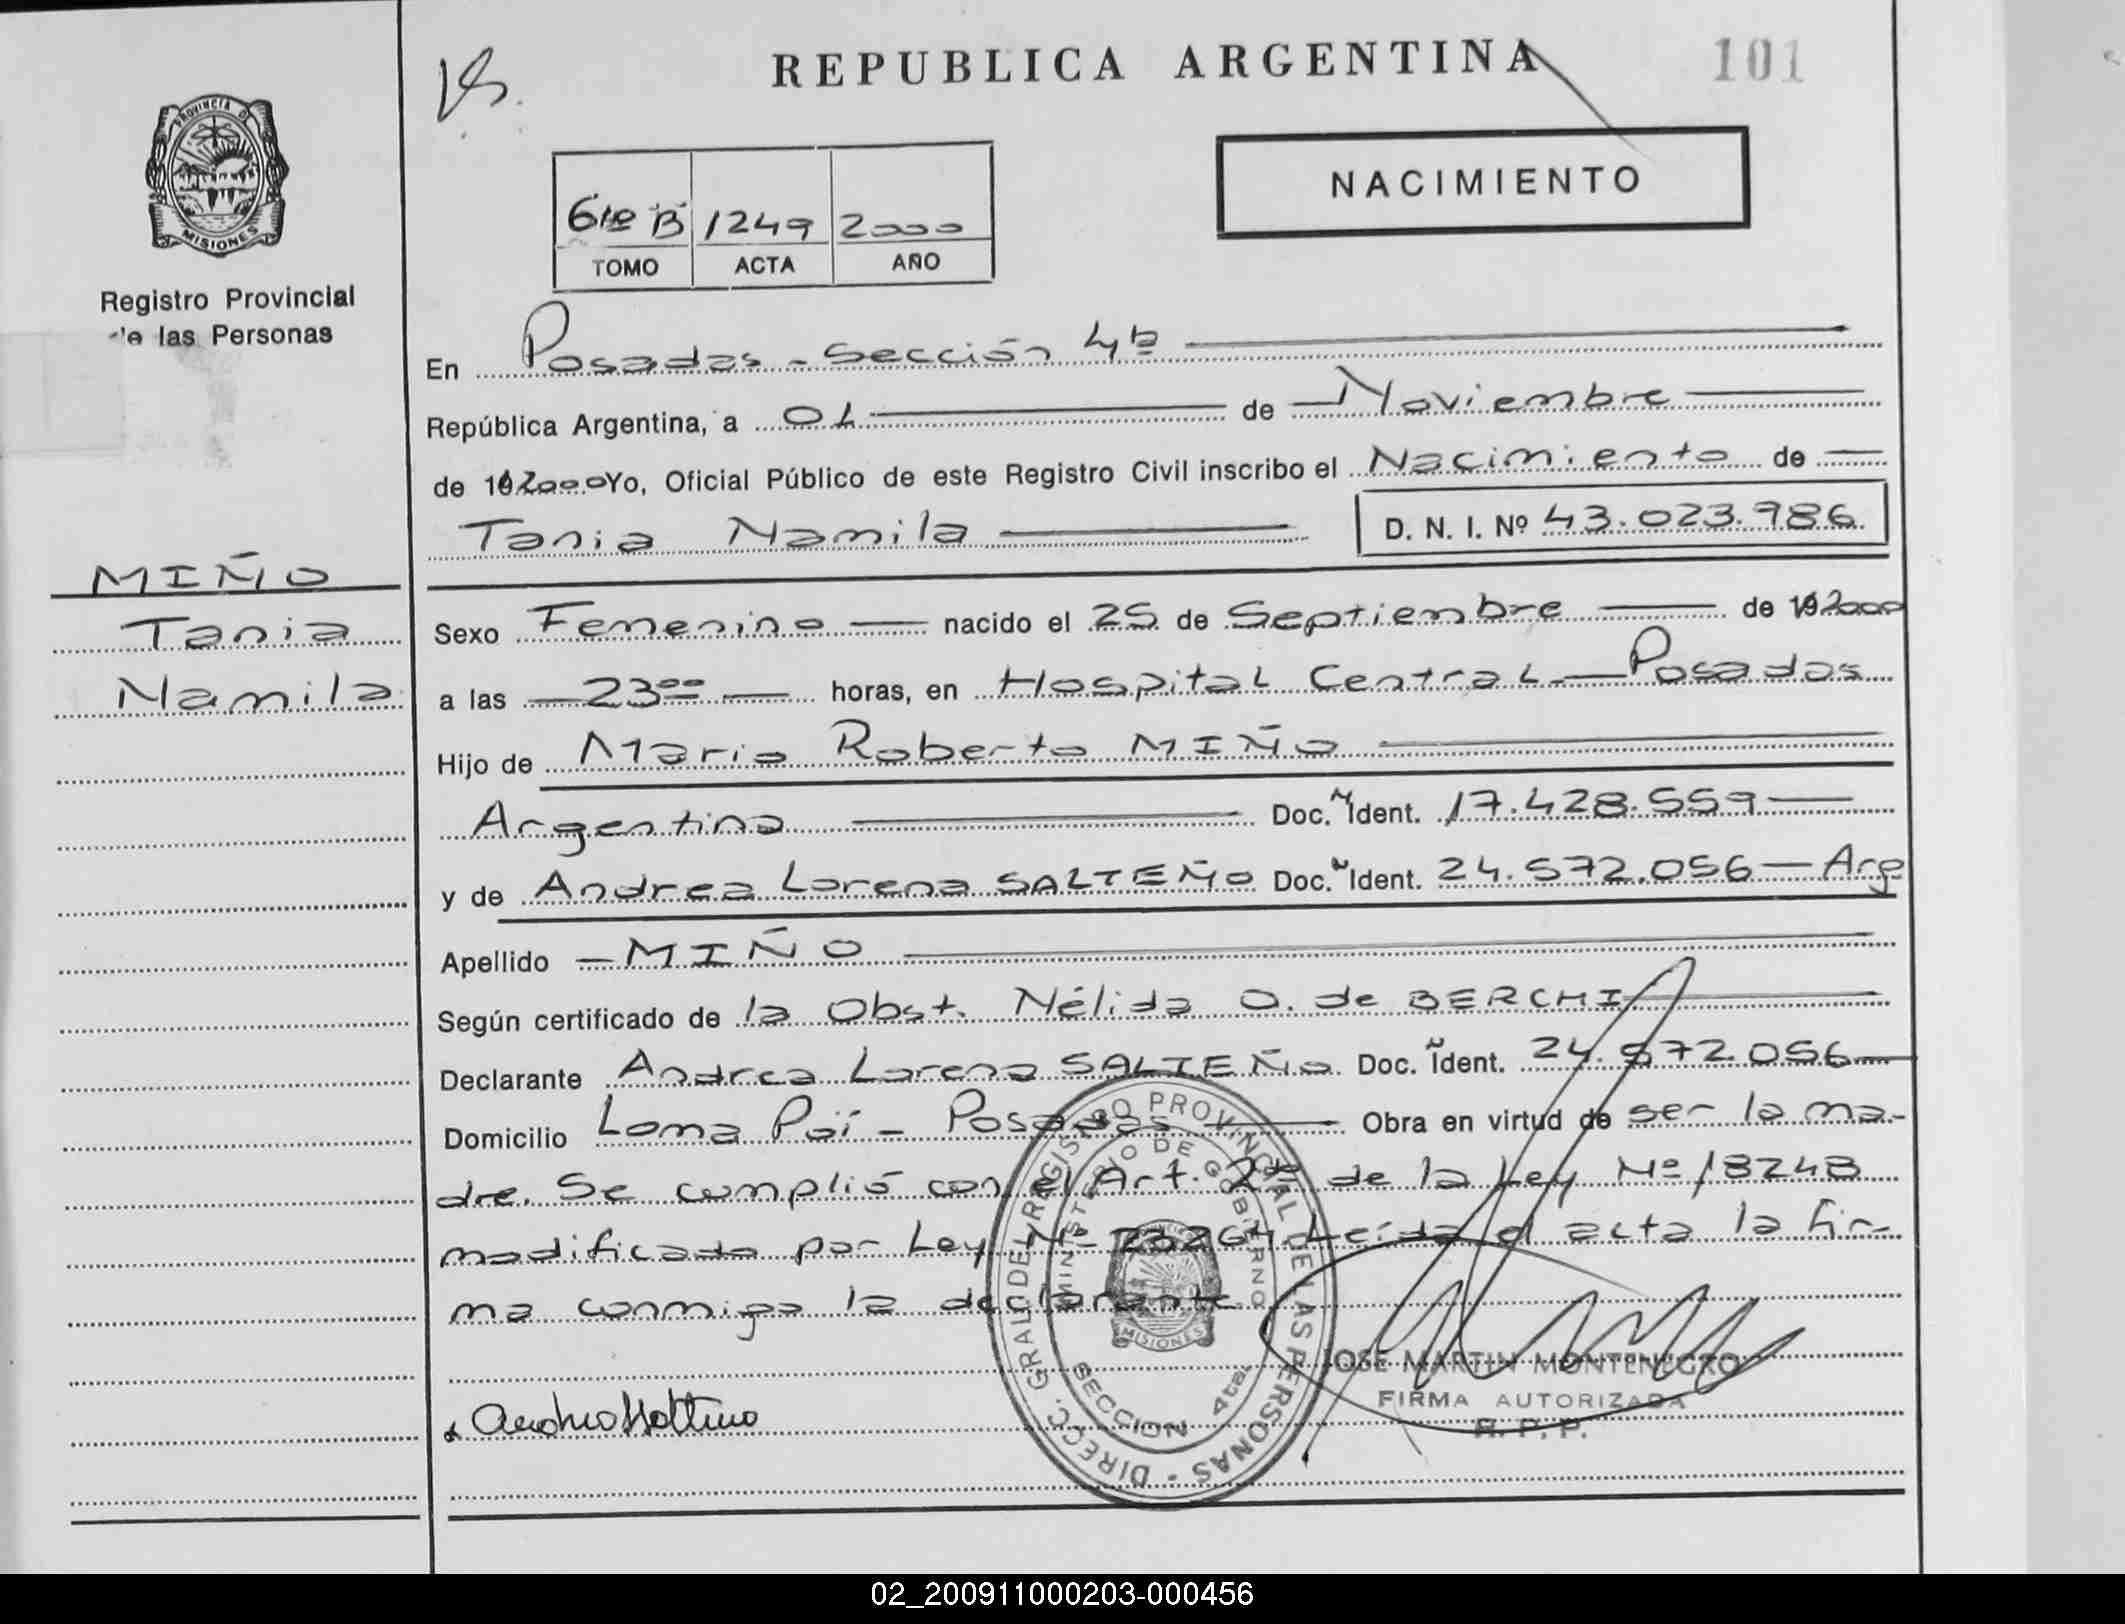 REPUBLICA ARGENTINA
101
NACIMIENTO
6to B 1249 2000
TOMO ACTA AÑO
PROVINCIA DE
MISIONES
Registro Provincial
de las Personas
MIÑO
Tania
Namila
En Posadas - Sección 4ta
República Argentina, a 01 de Noviembre
de 19 2000 Yo, Oficial Público de este Registro Civil inscribo el Nacimiento de
Tania Namila D. N. I. Nº 43.023.986
Sexo Femenino nacido el 25 de Septiembre de 19 2000
a las 23 00 horas, en Hospital Central - Posadas
Hijo de Mario Roberto MIÑO
Argentino Doc. N Ident. 17.428.559
y de Andrea Lorena SALTEÑO Doc. N Ident. 24.572.056 - Arg
Apellido - MIÑO
Según certificado de la Obst. Nélida O. de BERCHI
Declarante Andrea Lorena SALTEÑO Doc. Ident. 24.572.056
Domicilio Loma Poí - Posadas Obra en virtud de ser la ma-
dre. Se cumplió con el Art. 2do de la Ley Nº 18248
modificado por Ley Nº 23264 Leída el acta la fir-
ma conmigo la declarante
DIRECC. GRAL DEL REGISTRO PROVINCIAL DE LAS PERSONAS -
MINISTERIO DE GOBIERNO
MISIONES
SECCION 4ta.
JOSE MARTIN MONTENEGRO
FIRMA AUTORIZADA
R. P. P.
02_200911000203-000456